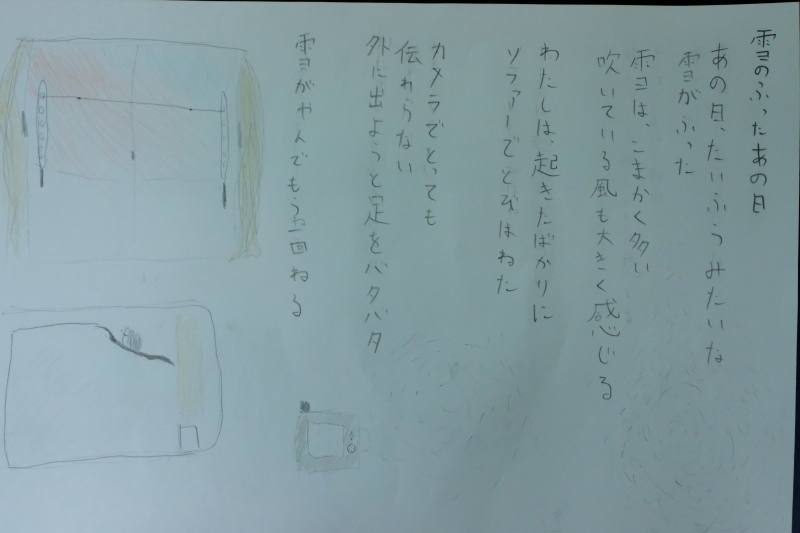 雪のふったあの日
あの日、たいふうみたいな
雪がふった
雪は、こまかく多い
吹いている風も大きく感じる
わたしは、起きたばかりに
ソファーでとびはねた
カメラでとっても
伝わらない
外に出ようと足をバタバタ
雪がやんでもう一回ねる